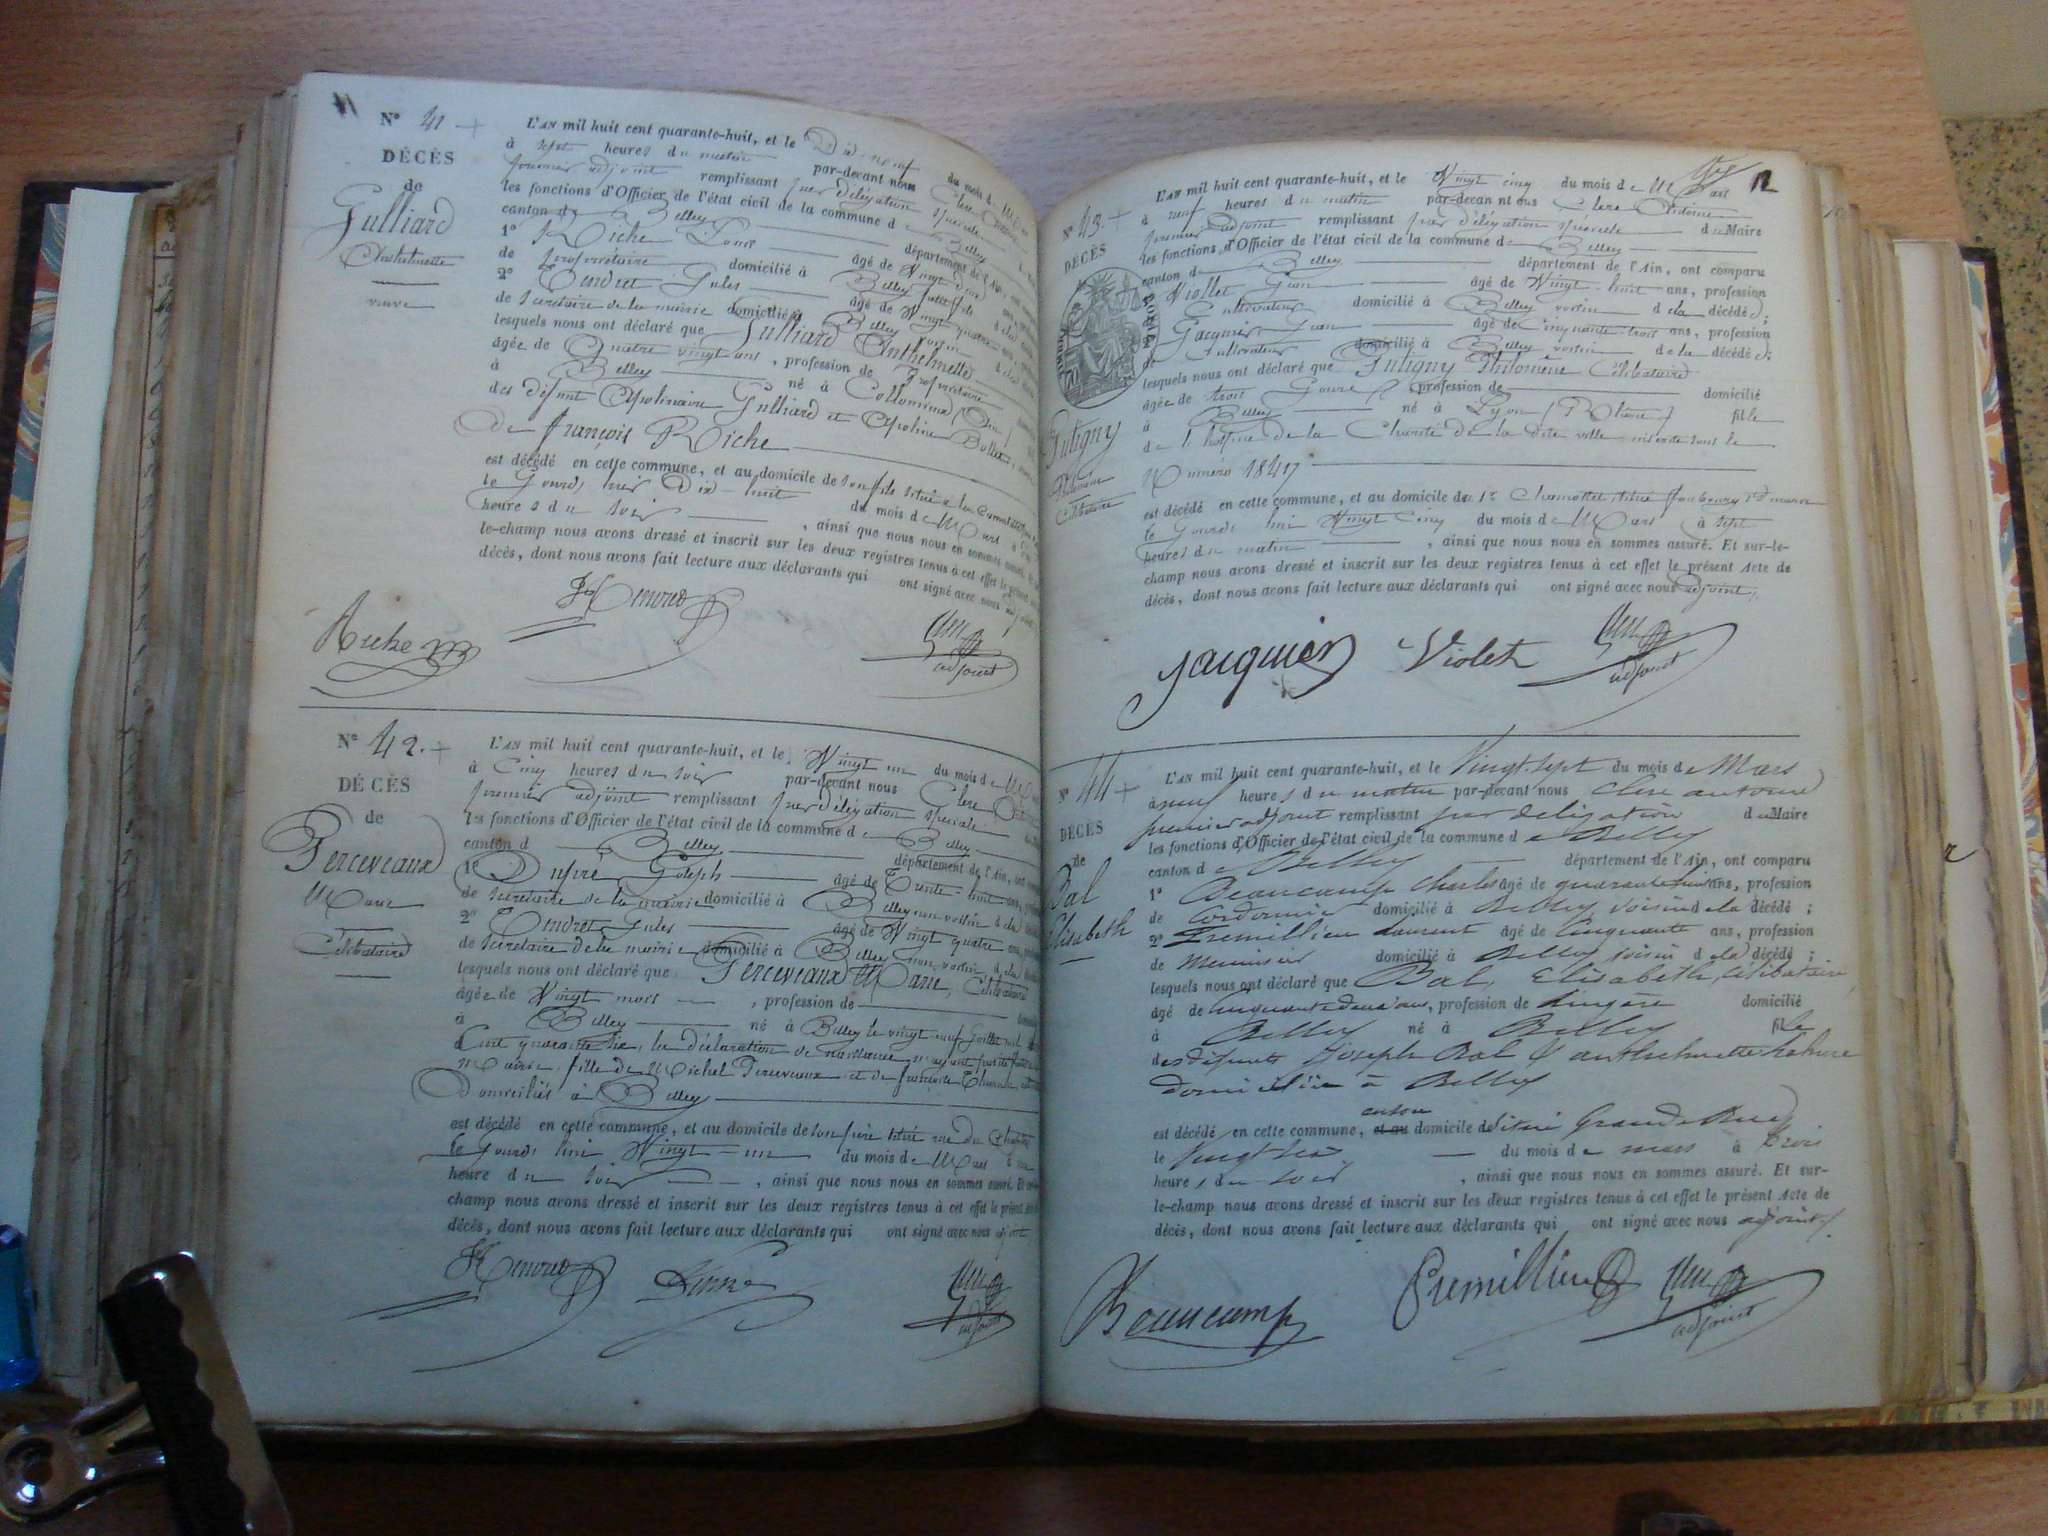 11
N° 41 +
DÉCÈS
de
Gulliard
Anthelmette
veuve
L'AN mil huit cent quarante-huit, et le Dix-neuf du mois de
à sept heures du matin par-devant nous Clerc
premier adjoint remplissant par délégation spéciale
les fonctions d'Officier de l'état civil de la commune de Belley
canton de Belley département de l'Ain, ont
1° Riche Louis âgé de Vingt
de propriétaire domicilié à Belley
2° Tendret Jules âgé de Vingt quatre
de Secrétaire de la mairie domicilié à Belley
lesquels nous ont déclaré que Gulliard Anthelmette
âgée de Quatre vingt ans, profession de propriétaire
à Belley né à Collomieu (Ain)
des défunt Apolinaire Gulliard et Apoline Bollet
De François Riche
est décédé en cette commune, et au domicile de son fils situé
le Jourd'hier Dix-huit du mois de Mars
heures du soir, ainsi que nous nous en sommes assuré.
le-champ nous avons dressé et inscrit sur les deux registres tenus à cet effet le présent
décès, dont nous avons fait lecture aux déclarants qui ont signé avec nous
Riche
Tendret
adjoint
N° 42. +
DÉCÈS
de
Perceveaux
Marie
Célibataire
L'AN mil huit cent quarante-huit, et le Vingt un du mois de
à Cinq heures du soir par-devant nous Clerc
premier adjoint remplissant par délégation spéciale
les fonctions d'Officier de l'état civil de la commune de Belley
canton d Belley département de l'Ain, ont
1° Dupré Joseph âgé de Trente-huit ans
de Secrétaire de la mairie domicilié à Belley non voisin d la
2° Tendret Jules âgé de Vingt quatre ans
de Secrétaire de la mairie domicilié à Belley non voisin d la
lesquels nous ont déclaré que Perceveaux Marie, Célibataire
âgée de Vingt mois, profession de
à Belley né à Belley le vingt neuf Juillet mil
Cent quarante six, la déclaration de naissance
Mairie fille de Michel Perceveaux et de
Domiciliés à Belley
est décédé en cette commune, et au domicile de son père situé rue du
le Jourd'hui Vingt-un du mois de Mars à
heure du soir, ainsi que nous nous en sommes assuré.
champ nous avons dressé et inscrit sur les deux registres tenus à cet effet le présent
décès, dont nous avons fait lecture aux déclarants qui ont signé avec nous adjoint
Tendret
Dupré
adjoint
12
N° 43 +
DÉCÈS
Putigny
Philomène
Célibataire
L'AN mil huit cent quarante-huit, et le Vingt cinq du mois de Mars
à neuf heures du matin par-devant nous Clerc Antoine
premier adjoint remplissant par délégation spéciale du Maire
les fonctions d'Officier de l'état civil de la commune de Belley
canton d Belley département de l'Ain, ont comparu
Viollet Jean âgé de Vingt-huit ans, profession
Cultivateur domicilié à Belley voisin d la décédée;
Jacquier Jean âgé de Cinquante-trois ans, profession
de Cultivateur domicilié à Belley voisin de la décédée;
lesquels nous ont déclaré que Putigny Philomène Célibataire
âgée de trois Jours, profession de domicilié
à Belley né à Lyon (Rhône) fille
de l'hospice de la Charité de la dite ville inscrite sous le
Numéro 1847
est décédé en cette commune, et au domicile du Sr Chamottet situé faubourg
le Jourd'hui Vingt Cinq du mois de Mars à sept
heures du matin, ainsi que nous nous en sommes assuré. Et sur-le-
champ nous avons dressé et inscrit sur les deux registres tenus à cet effet le présent Acte de
décès, dont nous avons fait lecture aux déclarants qui ont signé avec nous adjoint.
Jacquier
Violet
adjoint
N° 44 +
DÉCÈS
de
Bal
Elisabeth
L'AN mil huit cent quarante-huit, et le Vingt-sept du mois de Mars
à neuf heures du matin par-devant nous Clerc antoine
premier adjoint remplissant par délégation du Maire
les fonctions d'Officier de l'état civil de la commune de Belley
canton de Belley département de l'Ain, ont comparu
1° Beaucamp Charles âgé de quarante huit ans, profession
de Cordonnier domicilié à Belley voisin de la décédé;
2° Premillieu Laurent âgé de Cinquante ans, profession
de Menuisier domicilié à Belley voisin d la décédé;
lesquels nous ont déclaré que Bal, Elisabeth, Célibataire
âgé de Cinquante deux ans, profession de Lingère domicilié
à Belley né à Belley fille
des défunts Joseph Bal & anthelmette
domiciliée à Belley
est décédé en cette commune, et au domicile de situé Grande Rue
le Vingt six du mois de mars à Trois
heures du soir, ainsi que nous nous en sommes assuré. Et sur-
le-champ nous avons dressé et inscrit sur les deux registres tenus à cet effet le présent Acte de
décès, dont nous avons fait lecture aux déclarants qui ont signé avec nous adjoint.
Beaucamp
Premillieu
adjoint